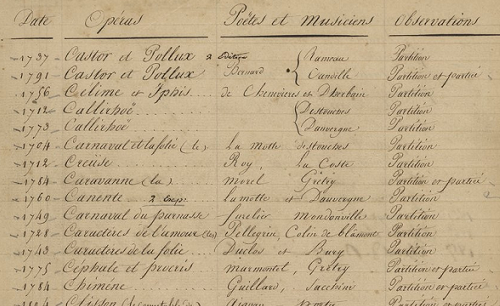 Date Opéras Poëtes et Musiciens Observations
1737 Castor et Pollux 2 Rameau Partition
1791 Castor et Pollux Bernard Candeille Partition et partié
1756 Celime et de Chennevieres et Partition
1712 Callirhoë Destouches Partition
1773 Callirhoë Dauvergne Partition
1704 Carnaval et la folie (le) La Motte Destouches Partition
1712 Creüse Roy, La Coste Partition
1784 Caravanne (la) Morel Grétry Partition et partié
1760 Canente 2 Lamotte et Dauvergne Partition
1749 Carnaval du parnasse fuselier Mondonville Partition
1728 Caractères de l'amour (les) Pellegrin, Colin de blamont Partition
1743 Caractères de la folie Duclos et Bury Partition
1775 Cephale et procris marmontel, Grétry Partition et partié
1784 Chimène Guillard, Sacchini Partition et partié